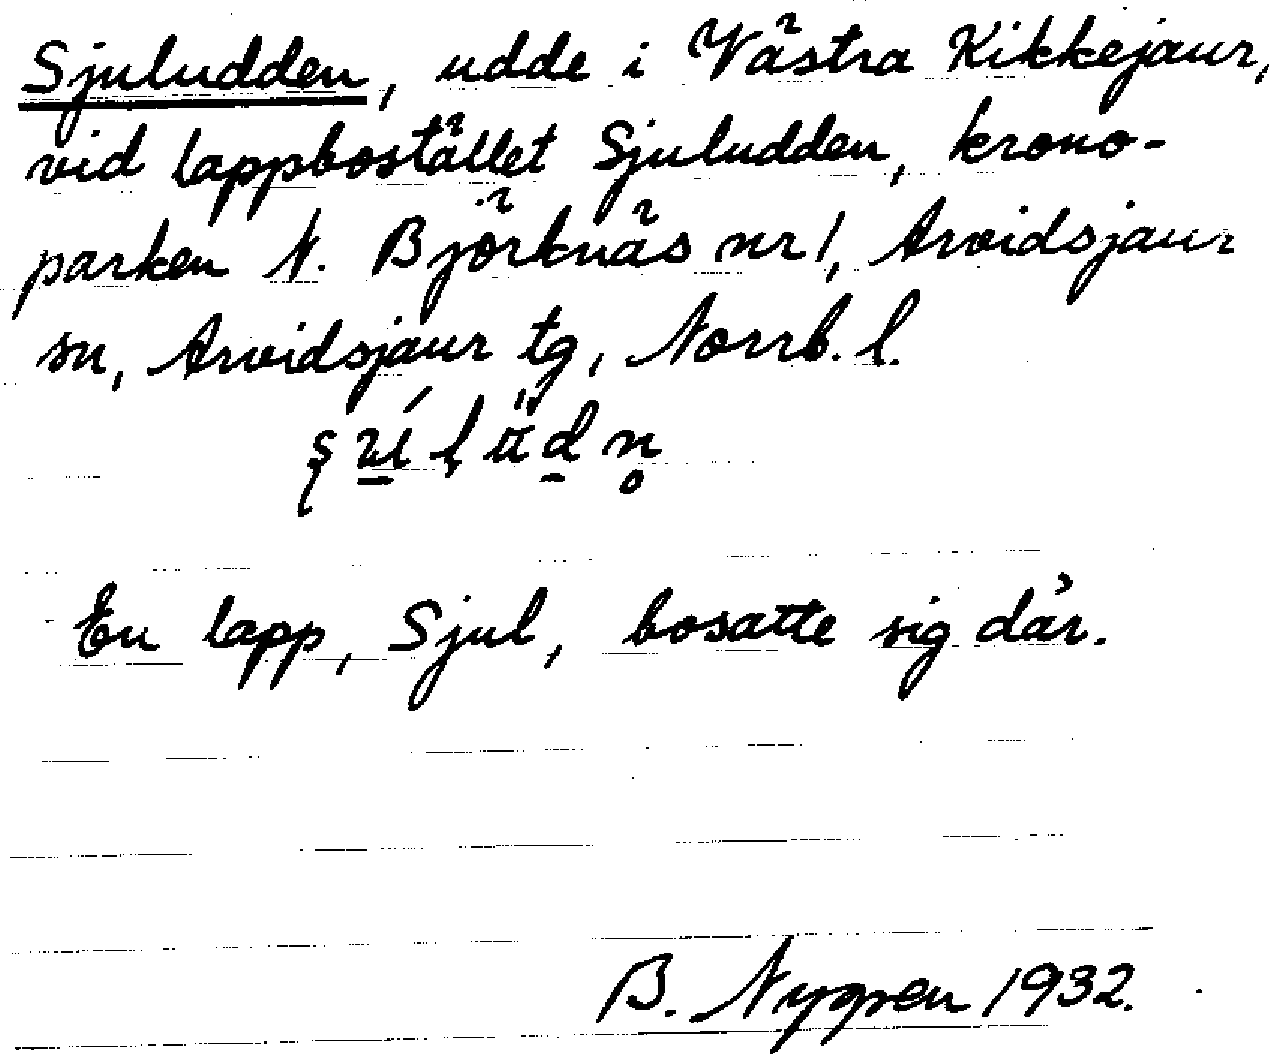 Sjuludden, udde i Västra Kikkejaur,
vid lappbostället Sjuludden, krono-
parken N. Björknäs nr 1, Arvidsjaur
sn, Arvidsjaur tg, Norrb. l.
En lapp, Sjul, bosatte sig där.
B. Nygren 1932.